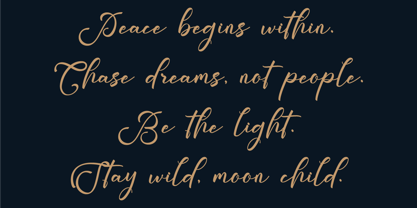 Peace begins within.
Chase dreams, not people.
Be the light.
Stay wild, moon child.